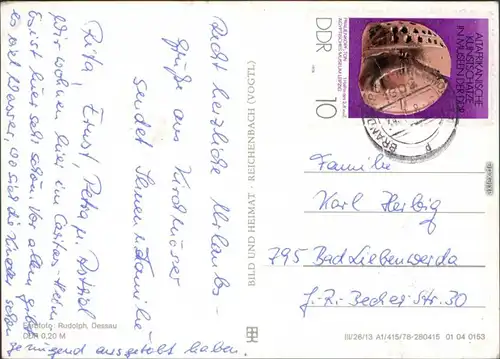 Recht herzliche Urlaubs-
grüße aus Kirchmöser
sendet Ihnen Familie
Rita, Ernst, Petra u.
Wir wohnen hier im Caritas-Heim.
Es ist hier sehr schön. Vor allem gibt
es viel Wasser, wo sich die Kinder schon
genügend ausgetobt haben.
Farbfoto: Rudolph, Dessau
DDR 0,20 M
BILD UND HEIMAT · REICHENBACH (VOGTL)
ALTAFRIKANISCHE
KUNSTSCHÄTZE
IN MUSEEN DER DDR
ÄGYPTISCHES MUSEUM LEIPZIG
DDR
10
Familie
Karl Herbig
795 Bad Liebenwerda
J.-R.-Becher-Str. 30
III/26/13 A1/415/78-280415 01 04 0153